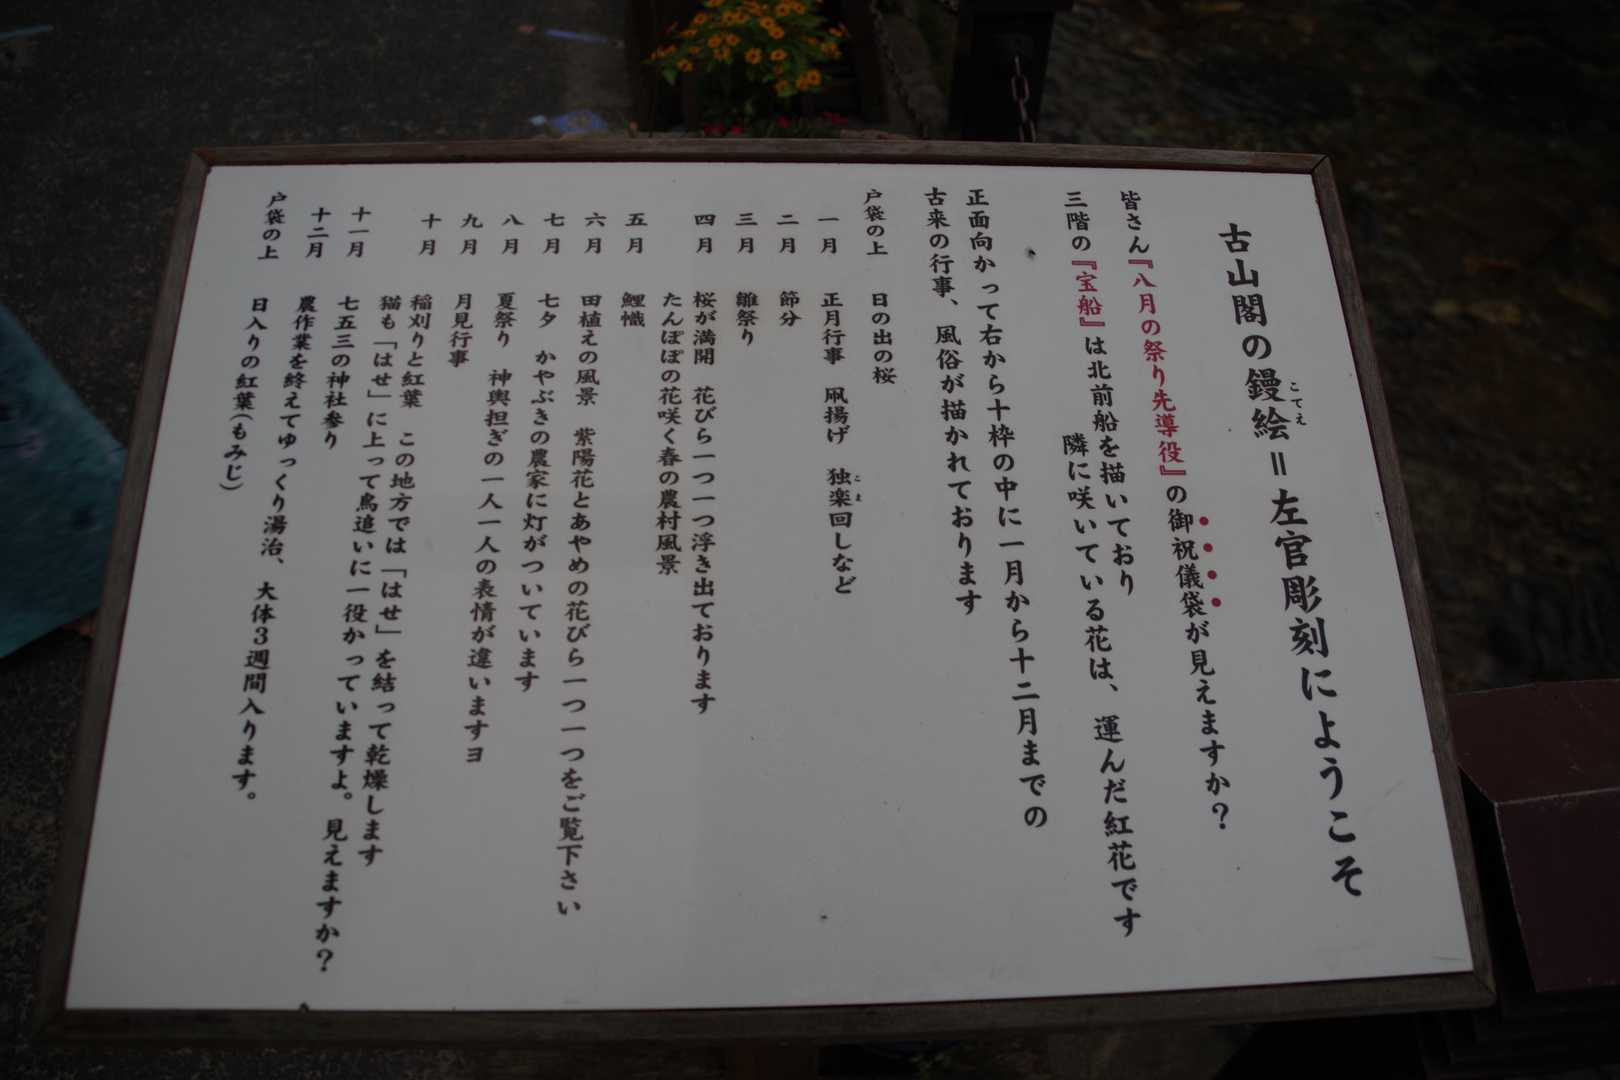 古山閣の鏝絵＝左官彫刻にようこそ
こてえ
皆さん『八月の祭り先導役』の御祝儀袋が見えますか？
三階の『宝船』は北前船を描いており
隣に咲いている花は、運んだ紅花です
正面向かって右から十枠の中に一月から十二月までの
古来の行事、風俗が描かれております
戸袋の上　日の出の桜
一月　正月行事　凧揚げ　独楽回しなど
こま
二月　節分
三月　雛祭り
四月　桜が満開　花びら一つ一つ浮き出ております
たんぽぽの花咲く春の農村風景
五月　鯉幟
六月　田植えの風景　紫陽花とあやめの花びら一つ一つをご覧下さい
七月　七夕　かやぶきの農家に灯がついています
八月　夏祭り　神輿担ぎの一人一人の表情が違いますヨ
九月　月見行事
十月　稲刈りと紅葉　この地方では「はせ」を結って乾燥します
猫も「はせ」に上って鳥追いに一役かっていますよ。見えますか？
十一月　七五三の神社参り
十二月　農作業を終えてゆっくり湯治、大体３週間入ります。
戸袋の上　日入りの紅葉（もみじ）